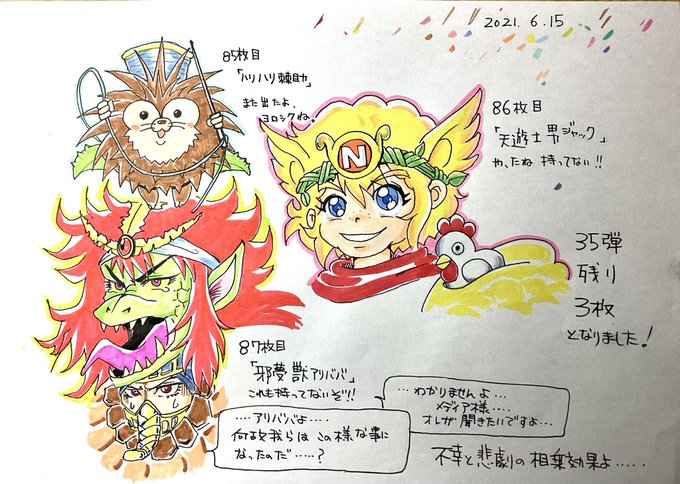 2021. 6.15
85枚目
「ハリハリ棘助」
また出たよ、
ヨロシクね。
N
86枚目
「天遊士男ジャック」
や、たね 持ってない!!
35弾
残り
3枚
となりました!
87枚目
「邪夢獣アリババ」
これも持ってないぞ!!
‥‥アリババよ‥‥
何故我らは この様な事に
なったのだ‥‥‥?
‥‥わかりませんよ‥‥
メディア様‥‥
オレが聞きたいですよ‥‥
不幸と悲劇の相乗効果よ‥‥‥